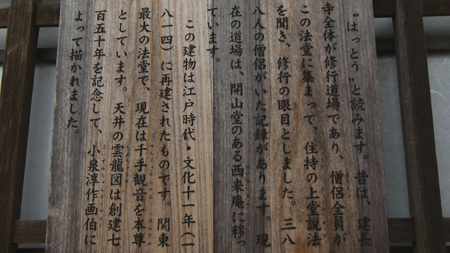 "はっとう"と読みます。昔は、建長
寺全体が修行道場であり、僧侶全員が
この法堂に集まって、住持の上堂説法
を聞き、修行の眼目としました。三八
八人の僧侶がいた記録があります。現
在の道場は、開山堂のある西来庵に移っ
ています。
この建物は江戸時代・文化十一年(一
八一四)に再建されたものです。関東
最大の法堂で、現在は千手観音を本尊
としています。天井の雲龍図は創建七
百五十年を記念して、小泉淳作画伯に
よって描かれました。